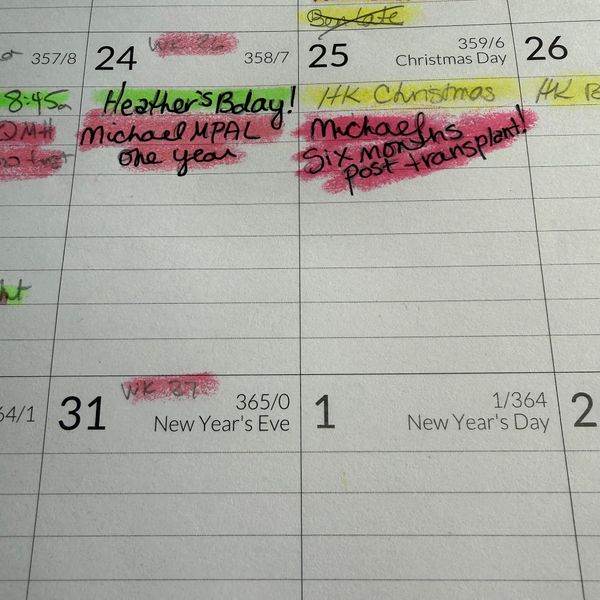 Bentate
357/8
24 WK 26 358/7
25 359/6
Christmas Day
26
8:45a
Heather's Bday!
HK Christmas
HK B
QMH
Michael MPAL
one year
Michael
Six months
post transplant!
ht
64/1
31 WK 27 365/0
New Year's Eve
1 1/364
New Year's Day
2